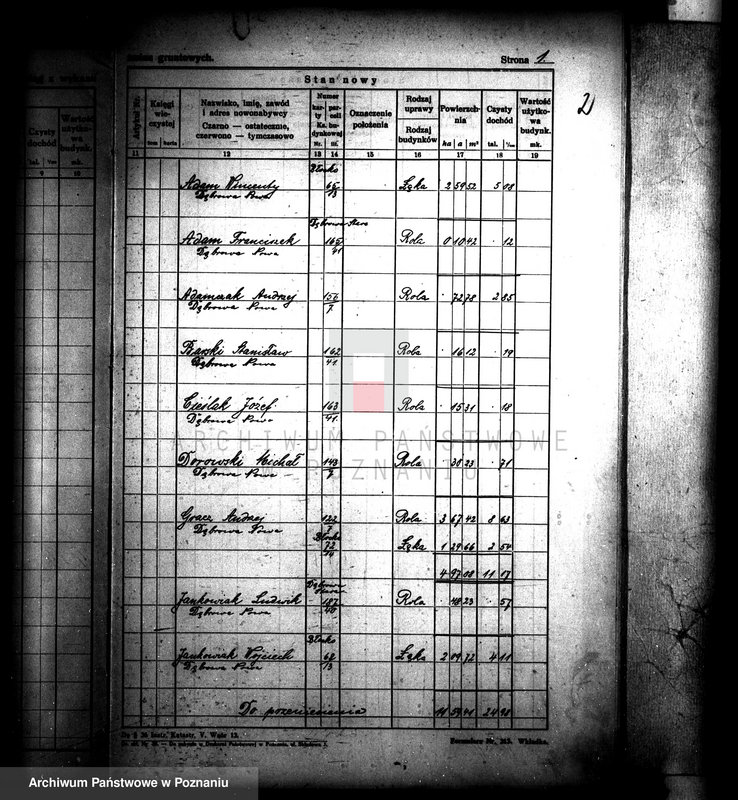 zmian gruntowych.
Strona 1
2
Stan nowy
Artykuł Nr.
Księgi wieczystej
tom
karta
Nazwisko, imię, zawód
i adres nowonabywcy
Czarno — ostatecznie,
czerwono — tymczasowo
Numer
karty
parceli
Nr.
Oznaczenie
położenia
Rodzaj
uprawy
Rodzaj
budynków
Powierzchnia
ha a m²
Czysty
dochód
tal. ¹/₁₀₀
Wartość
użytkowa
budynk.
mk.
Czysty
dochód
tal. ¹/₁₀₀
Wartość
użytkowa
budynk.
mk.
9 10
11 12 13 14 15 16 17 18 19
Błocko
Adam Wincenty 66/13 Łąka 2 59 52 5 08
Dąbrowa Nowa
Dąbrowa Stara
Adam Franciszek 165/41 Rola 0 10 42 · 12
Dąbrowa Nowa
Adamczak Andrzej 156/7 Rola · 72 78 2 85
Dąbrowa Nowa
Stanisław 162/41 Rola · 16 12 · 19
Dąbrowa Nowa
Cieślak Józef 163/41 Rola · 15 31 · 18
Dąbrowa Nowa
Dorowski Michał 143/7 Rola · 30 23 · 71
Dąbrowa Nowa
Gracz Andrzej 122/7 Rola 3 67 42 8 63
Dąbrowa Nowa
Błocko
72/14 Łąka 1 29 66 2 54
4 97 08 11 17
Dąbrowa Stara
Jankowiak Ludwik 187/40 Rola · 48 23 · 57
Dąbrowa Nowa
Błocko
Jankowiak Wojciech 68/13 Łąka 2 09 72 4 11
Dąbrowa Nowa
Do przeniesienia 11 59 41 24 98
Do § 36 Instr. Katastr. V. Wzór 12.
Formularz Nr. 263. Wkładka.
ARCHIWUM PAŃSTWOWE
W POZNANIU
Archiwum Państwowe w Poznaniu